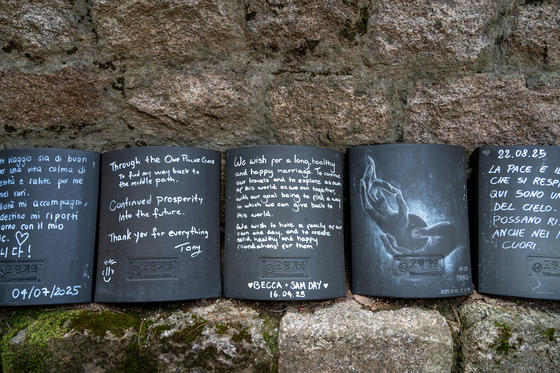 viaggio sia di buon
una vita colma di
e salute per me
mi accompagni,
destino mi riporti
con il mio
04/07/2025
Through the One Pillar Gate
To find my way back
to the middle path.
Continued prosperity
into the future.
Thank you for everything
Tony
고령기와
We wish for a long, healthy
and happy marriage. To continue
our travels and to explore as much
of this world as we can together
with our goal being to find a way
in which we can give back to
this world.
We wish to have a family of our
own one day, and to create
solid healthy and happy
foundations for them.
고령기와
♥BECCA + SAM DAY♥
16.04.25
고령기와
22.08.25
LA PACE E IL
CHE SI RESPI
QUI SONO UN
DEL CIELO.
POSSANO
ANCHE NEI
CUORI.
고령기와